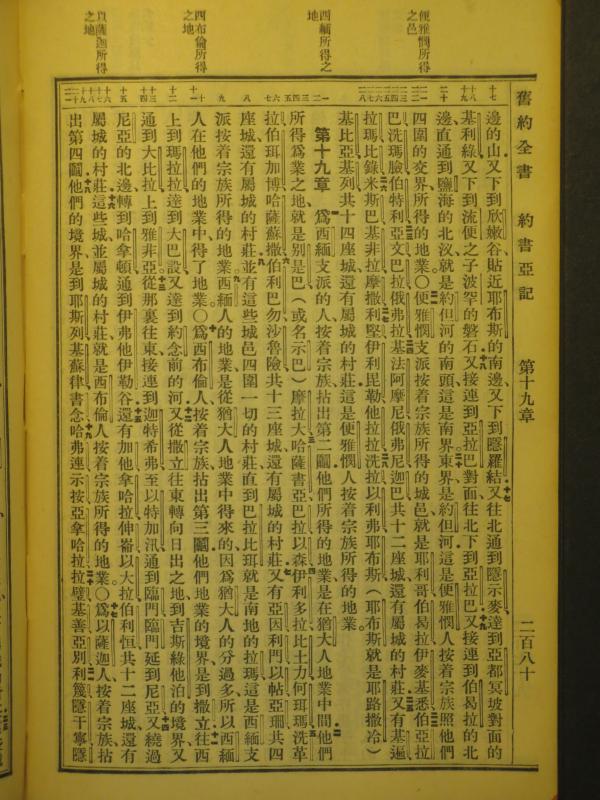 舊約全書 約書亞記 第十九章 二百八十
便雅憫所得
之邑
西緬所得之
地
西布倫所得
之地
以薩迦所得
之地
邊的山又下到欣嫩谷貼近耶布斯的南邊又下到隱羅結又往北通到隱示麥達到亞都冥坡對面的
基利綠又下到流便之子波罕的磐石又接連到亞拉巴對面往北下到亞拉巴又接連到伯曷拉的北
邊直通到鹽海的北汊就是約但河的南頭這是南界東界是約但河這是便雅憫人按着宗族照他們
四圍的交界所得的地業○便雅憫支派按着宗族所得的城邑就是耶利哥伯曷拉伊麥基悉伯亞拉
巴洗瑪臉伯特利亞文巴拉俄弗拉基法阿摩尼俄弗尼迦巴共十二座城還有屬城的村莊又有基遍
拉瑪比錄米斯巴基非拉摩撒利堅伊利毘勒他拉拉洗拉以利弗耶布斯（耶布斯就是耶路撒冷）
基比亞基列共十四座城還有屬城的村莊這是便雅憫人按着宗族所得的地業。
第十九章 爲西緬支派的人按着宗族拈出第二鬮他們所得的地業是在猶大人地業中間他們
所得爲業之地就是別是巴（或名示巴）摩拉大哈薩書亞巴拉以森伊利多拉比土力何珥瑪洗革
拉伯珥加博哈薩蘇撒伯利巴勿沙魯險共十三座城還有屬城的村莊又有亞因利門以帖亞珊共四
座城還有屬城的村莊並有這些城邑四圍一切的村莊直到巴拉比珥就是南地的拉瑪這是西緬支
派按着宗族所得的地業西緬人的地業是從猶大人地業中得來的因爲猶大人的分過多所以西緬
人在他們的地業中得了地業○爲西布倫人按着宗族拈出第三鬮他們地業的境界是到撒立往西
上到瑪拉拉達到大巴設又達到約念前的河又從撒立往東轉向日出之地到吉斯綠他泊的境界又
通到大比拉上到雅非亞從那裏往東接連到迦特希弗至以特加汛通到臨門臨門延到尼亞又繞過
尼亞的北邊轉到哈拿頓通到伊弗他伊勒谷還有加他拿哈拉伸崙以大拉伯利恒共十二座城還有
屬城的村莊這些城並屬城的村莊就是西布倫人按着宗族所得的地業○爲以薩迦人按着宗族拈
出第四鬮他們的境界是到耶斯列基蘇律書念哈弗連示按亞拿哈拉拉璧基善亞別利篾隱干寧隱